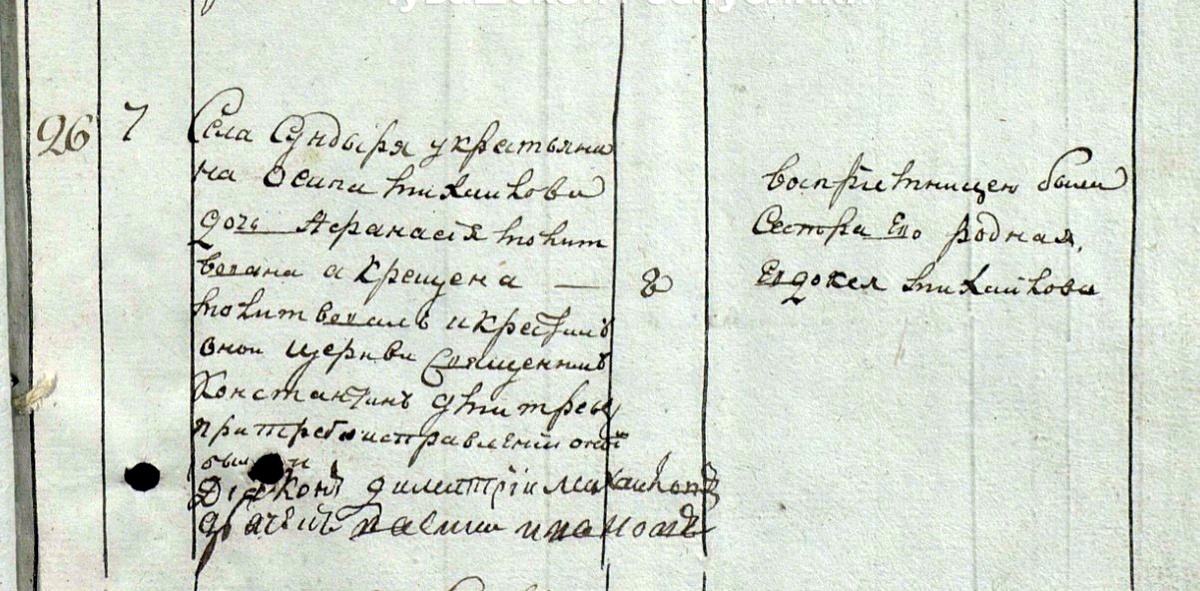 26 7 Села Сундыря у крестьяни
на Осипа михаилова
дочь Афанасія молит
вована а крещена — 8
молитвовалъ и крестилъ
оной церкви священникъ
Константинъ дмитреев
при требоисправлении оной
были и
Діяконъ димитріи михаиловъ
дьячекъ
воспріемницею была
Сестра Ево родная,
Евдокея михаилова